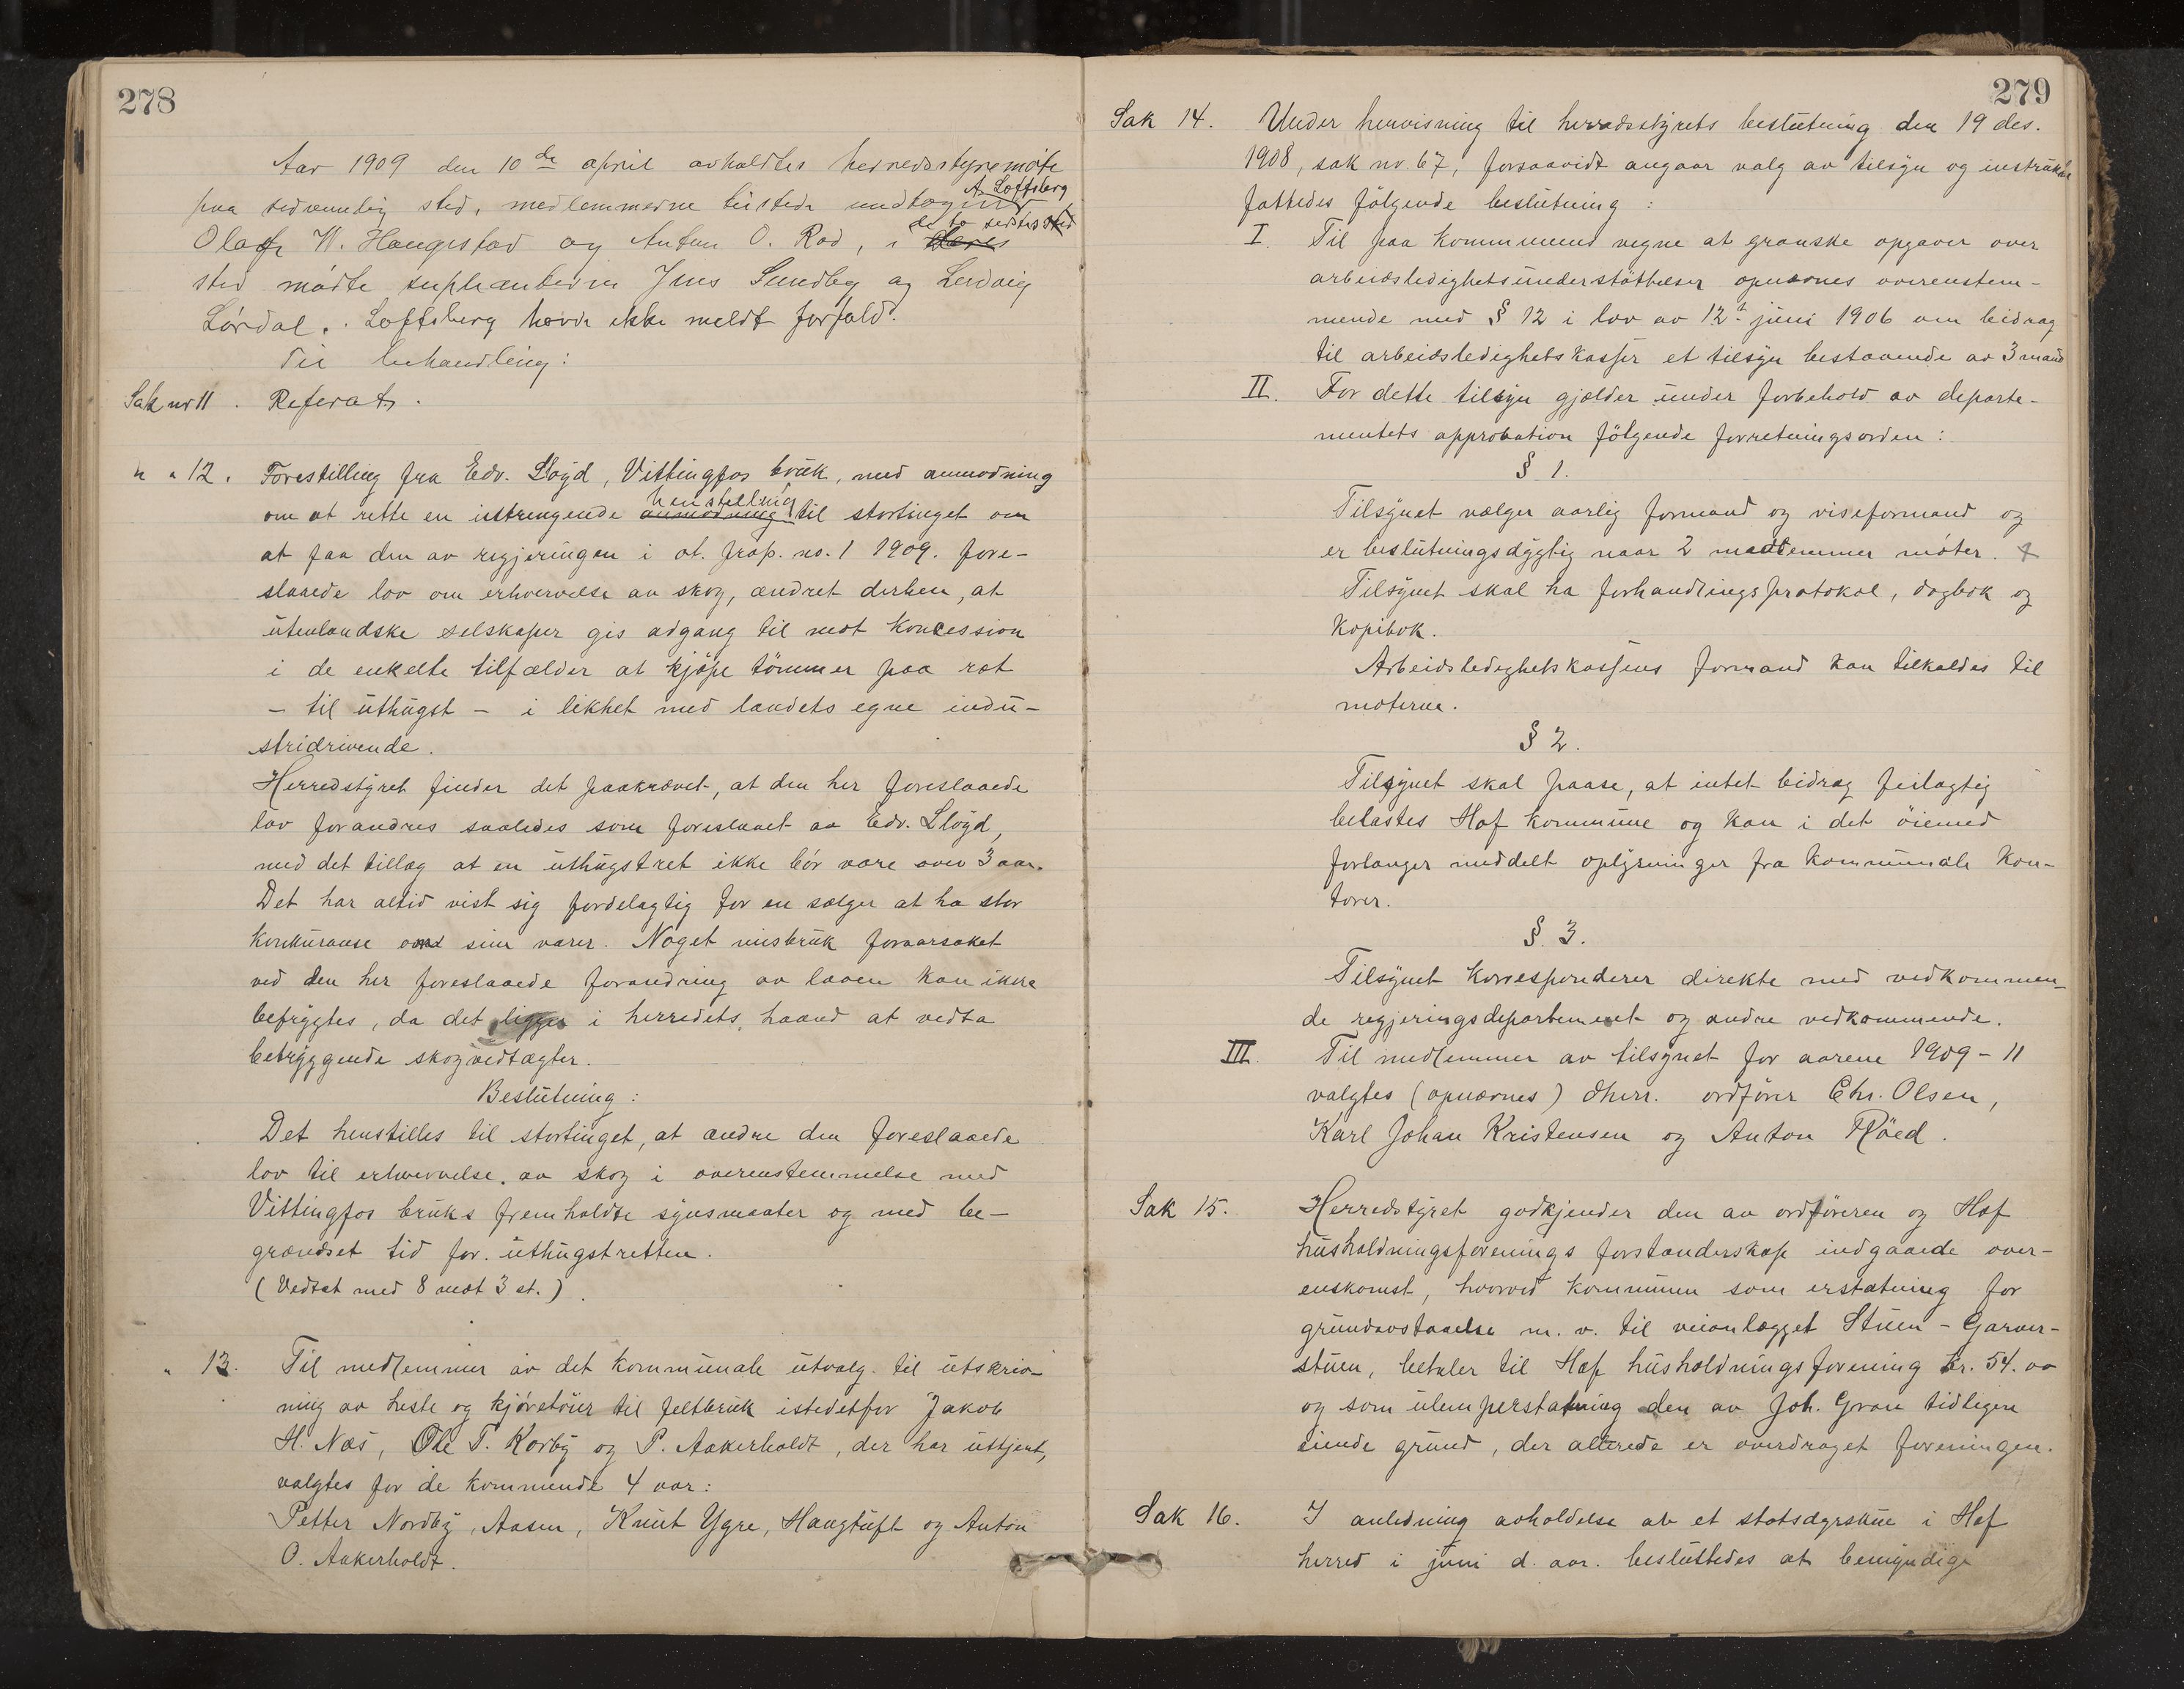 278
Aar 1909 den 10de april avholdtes herredsstyremøte
paa sedvanlig sted, medlemmerne tilstede undtagen A. Loffsberg
Olaf W. Haugestad og Anton O. Rød, i deres de to sidstes sted
sted mødte suppleanterne Jens Sundby og Ludvig
Lørdal. Loffsberg havde ikke meldt forfald.
Til behandling:
Sak nr 11. Referat.
" " 12. Forestilling fra Edv. Lloyd, Vittingfos brük, med anmodning
om at rette en indtrengende anmodning henstelling til stortinget om
at faa den av regjeringen i ot. prop. no. 1 1909. fore-
slaaede lov om erhvervelse av skog, ændret derhen, at
ütenlandske selskaper gis adgang til mot koncession
i de enkelte tilfælder at kjøpe tømmer paa rot
– til üthügst – i likhet med landets egne indü-
stridrivende.
Herredstyret finder det paakrævet, at den her foreslaaede
lov forandres saaledes som foreslaaet av Edv. Lloyd,
med det tillæg at en üthügstret ikke bør vare over 3 aar.
Det har altid vist sig fordelagtig for en sælger at ha stor
konküranse ved sine varer. Noget misbrük foraarsaket
ved den her foreslaaede forandring av loven kan ikke
befrygtes, da det ligger i herredets haand at vedta
betryggende skogvedtægter.
Beslütning:
Det henstilles til stortinget, at ændre den foreslaaede
lov til erhvervelse av skog i overenstemmelse med
Vittingfos brüks fremholdte synsmaater og med be-
grændset tid for üthügstretten.
(Vedtat med 8 mot 3 st.)
" 13. Til medlemmer av det kommünale ütvalg til ütskriv-
ning av heste og kjøretøier til feltbrük istedetfor Jakob
H. Næs, Ole T. Korby og P. Aakerholdt, der har üttjent,
valgtes for de kommende 4 aar:
Petter Nordby, Aasen, Knüt Ygre, Haugtüft og Anton
O. Aakerholdt.
279
Sak 14. Under henvisning til herradsstyrets beslütning den 19 des.
1908, sak nr. 67, forsaavidt angaar valg av tilsyn og instrüks
fattedes følgende beslütning:
I. Til paa kommünens vegne at granske opgaver over
arbeidsledighetsünderstøttelser opnævnes overenstem-
mende med § 12 i lov av 12te jüni 1906 om bidrag
til arbeidsledighetskasser et tilsyn bestaaende av 3 mand
II. For dette tilsyn gjælder ünder forbehold av departe-
mentets approbation følgende forretningsorden:
§ 1.
Tilsynet vælger aarlig formand og viseformand og
er beslütningsdygtig naar 2 medlemmer møter.
Tilsynet skal ha forhandlingsprotokol, dagbok og
kopibok.
Arbeidsledighetskassens formand kan tilkaldes til
møterne.
§ 2.
Tilsynet skal paase, at intet bidrag feilagtig
belastes Hof kommüne og kan i det øiemed
forlanger meddelt oplysninger fra kommünale kon-
torer.
§. 3.
Tilsynet korresponderer direkte med vedkommen-
de regjeringsdepartement og andre vedkommende.
III. Til medlemmer av tilsynet for aarene 1909 – 11
valgtes (opnævnes) dherr. ordfører Chr. Olsen,
Karl Johan Kristensen og Anton Røed.
Sak 15. Herredstyret godkjender den av ordføreren og Hof
hüsholdningsforenings forstanderskap indgaaede over-
enskomst, hvorved kommünen som erstatning for
gründavstaaelse m. v. til veianlægget Stüen – Garver-
stüen, betaler til Hof hüsholdningsforening kr. 54.00
og som ülemperstatning den av Joh. Gran tidligere
eiende gründ, der allerede er overdraget foreningen.
Sak 16. I anledning avholdelse av et statsdyrsküe i Hof
herred i jüni d. aar. beslüttedes at bemyndige